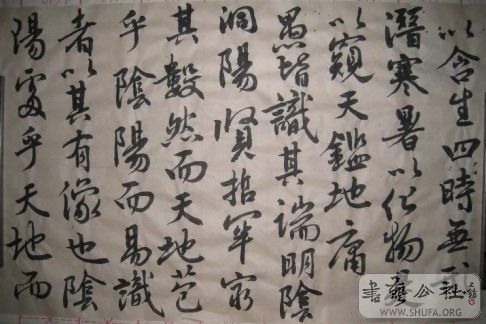 以含生四時無
潛寒暑以化物
以窺天鑑地庸
愚皆識其端明陰
洞陽賢哲罕窮
其數然而天地苞
乎陰陽而易識
者以其有像也陰
陽處乎天地而
書藝公社
WWW.SHUFA.ORG